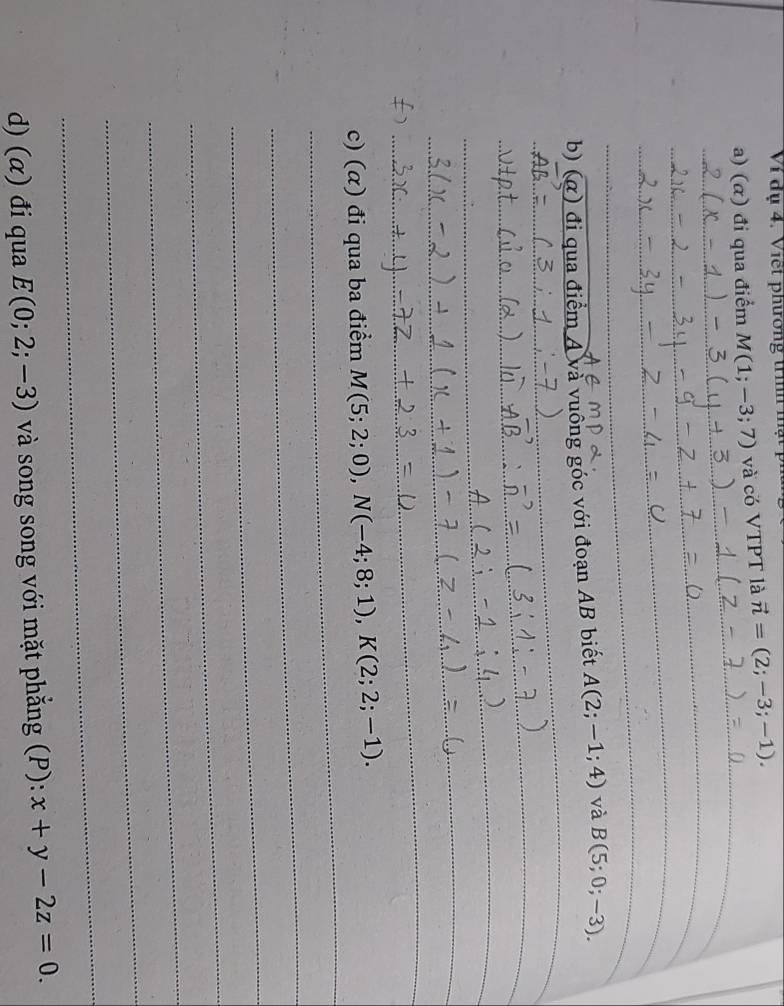 Ví dụ 4. Viết phương trình
a) (α) đi qua điểm M(1; −3; 7) và có VTPT là n⃗ = (2; −3; −1).
2(x − 1) − 3(y + 3) − 1(z − 7) = 0
2x − 2 − 3y − 9 − z + 7 = 0
2x − 3y − z − 4 = 0
A ∈ mp α.
b) (α) đi qua điểm A và vuông góc với đoạn AB biết A(2; −1; 4) và B(5; 0; −3).
AB⃗ = (3; 1; −7)
vtpt của (α) là AB⃗ : n⃗ = (3; 1; −7)
A(2; −1; 4)
3(x − 2) + 1(x + 1) − 7(z − 4) = 0
3x + y − 7z + 23 = 0
c) (α) đi qua ba điểm M(5; 2; 0), N(−4; 8; 1), K(2; 2; −1).
d) (α) đi qua E(0; 2; −3) và song song với mặt phẳng (P): x + y − 2z = 0.